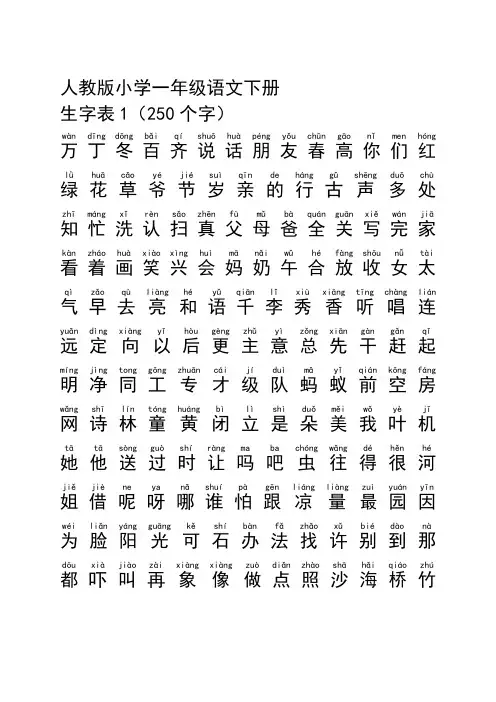 人教版小学一年级语文下册
生字表1（250个字）
wàn dīng dōng bǎi qí shuō huà péng yǒu chūn gāo nǐ men hóng
万 丁 冬 百 齐 说 话 朋 友 春 高 你 们 红
lǜ huā cǎo yé jié suì qīn de háng gǔ shēng duō chù
绿 花 草 爷 节 岁 亲 的 行 古 声 多 处
zhī máng xǐ rèn sǎo zhēn fù mǔ bà quán guān xiě wán jiā
知 忙 洗 认 扫 真 父 母 爸 全 关 写 完 家
kàn zháo huà xiào xìng huì mā nǎi wǔ hé fàng shōu nǚ tài
看 着 画 笑 兴 会 妈 奶 午 合 放 收 女 太
qì zǎo qù liàng hé yǔ qiān lǐ xiù xiāng tīng chàng lián
气 早 去 亮 和 语 千 李 秀 香 听 唱 连
yuǎn dìng xiàng yǐ hòu gèng zhǔ yì zǒng xiān gàn gǎn qǐ
远 定 向 以 后 更 主 意 总 先 干 赶 起
míng jìng tong gōng zhuān cái jí duì mǎ yǐ qián kōng fáng
明 净 同 工 专 才 级 队 蚂 蚁 前 空 房
wǎng shī lín tóng huáng bì lì shì duǒ měi wǒ yè jī
网 诗 林 童 黄 闭 立 是 朵 美 我 叶 机
tā tā sòng guò shí ràng ma ba chóng wǎng dé hěn hé
她 他 送 过 时 让 吗 吧 虫 往 得 很 河
jiě jiè ne ya nǎ shuí pà gēn liáng liàng zuì yuán yīn
姐 借 呢 呀 哪 谁 怕 跟 凉 量 最 园 因
wéi liǎn yáng guāng kě shí bàn fǎ zhǎo xǔ bié dào nà
为 脸 阳 光 可 石 办 法 找 许 别 到 那
dōu xià jiào zài xiàng xiàng zuò diǎn zhào shā hǎi qiáo zhú
都 吓 叫 再 象 像 做 点 照 沙 海 桥 竹